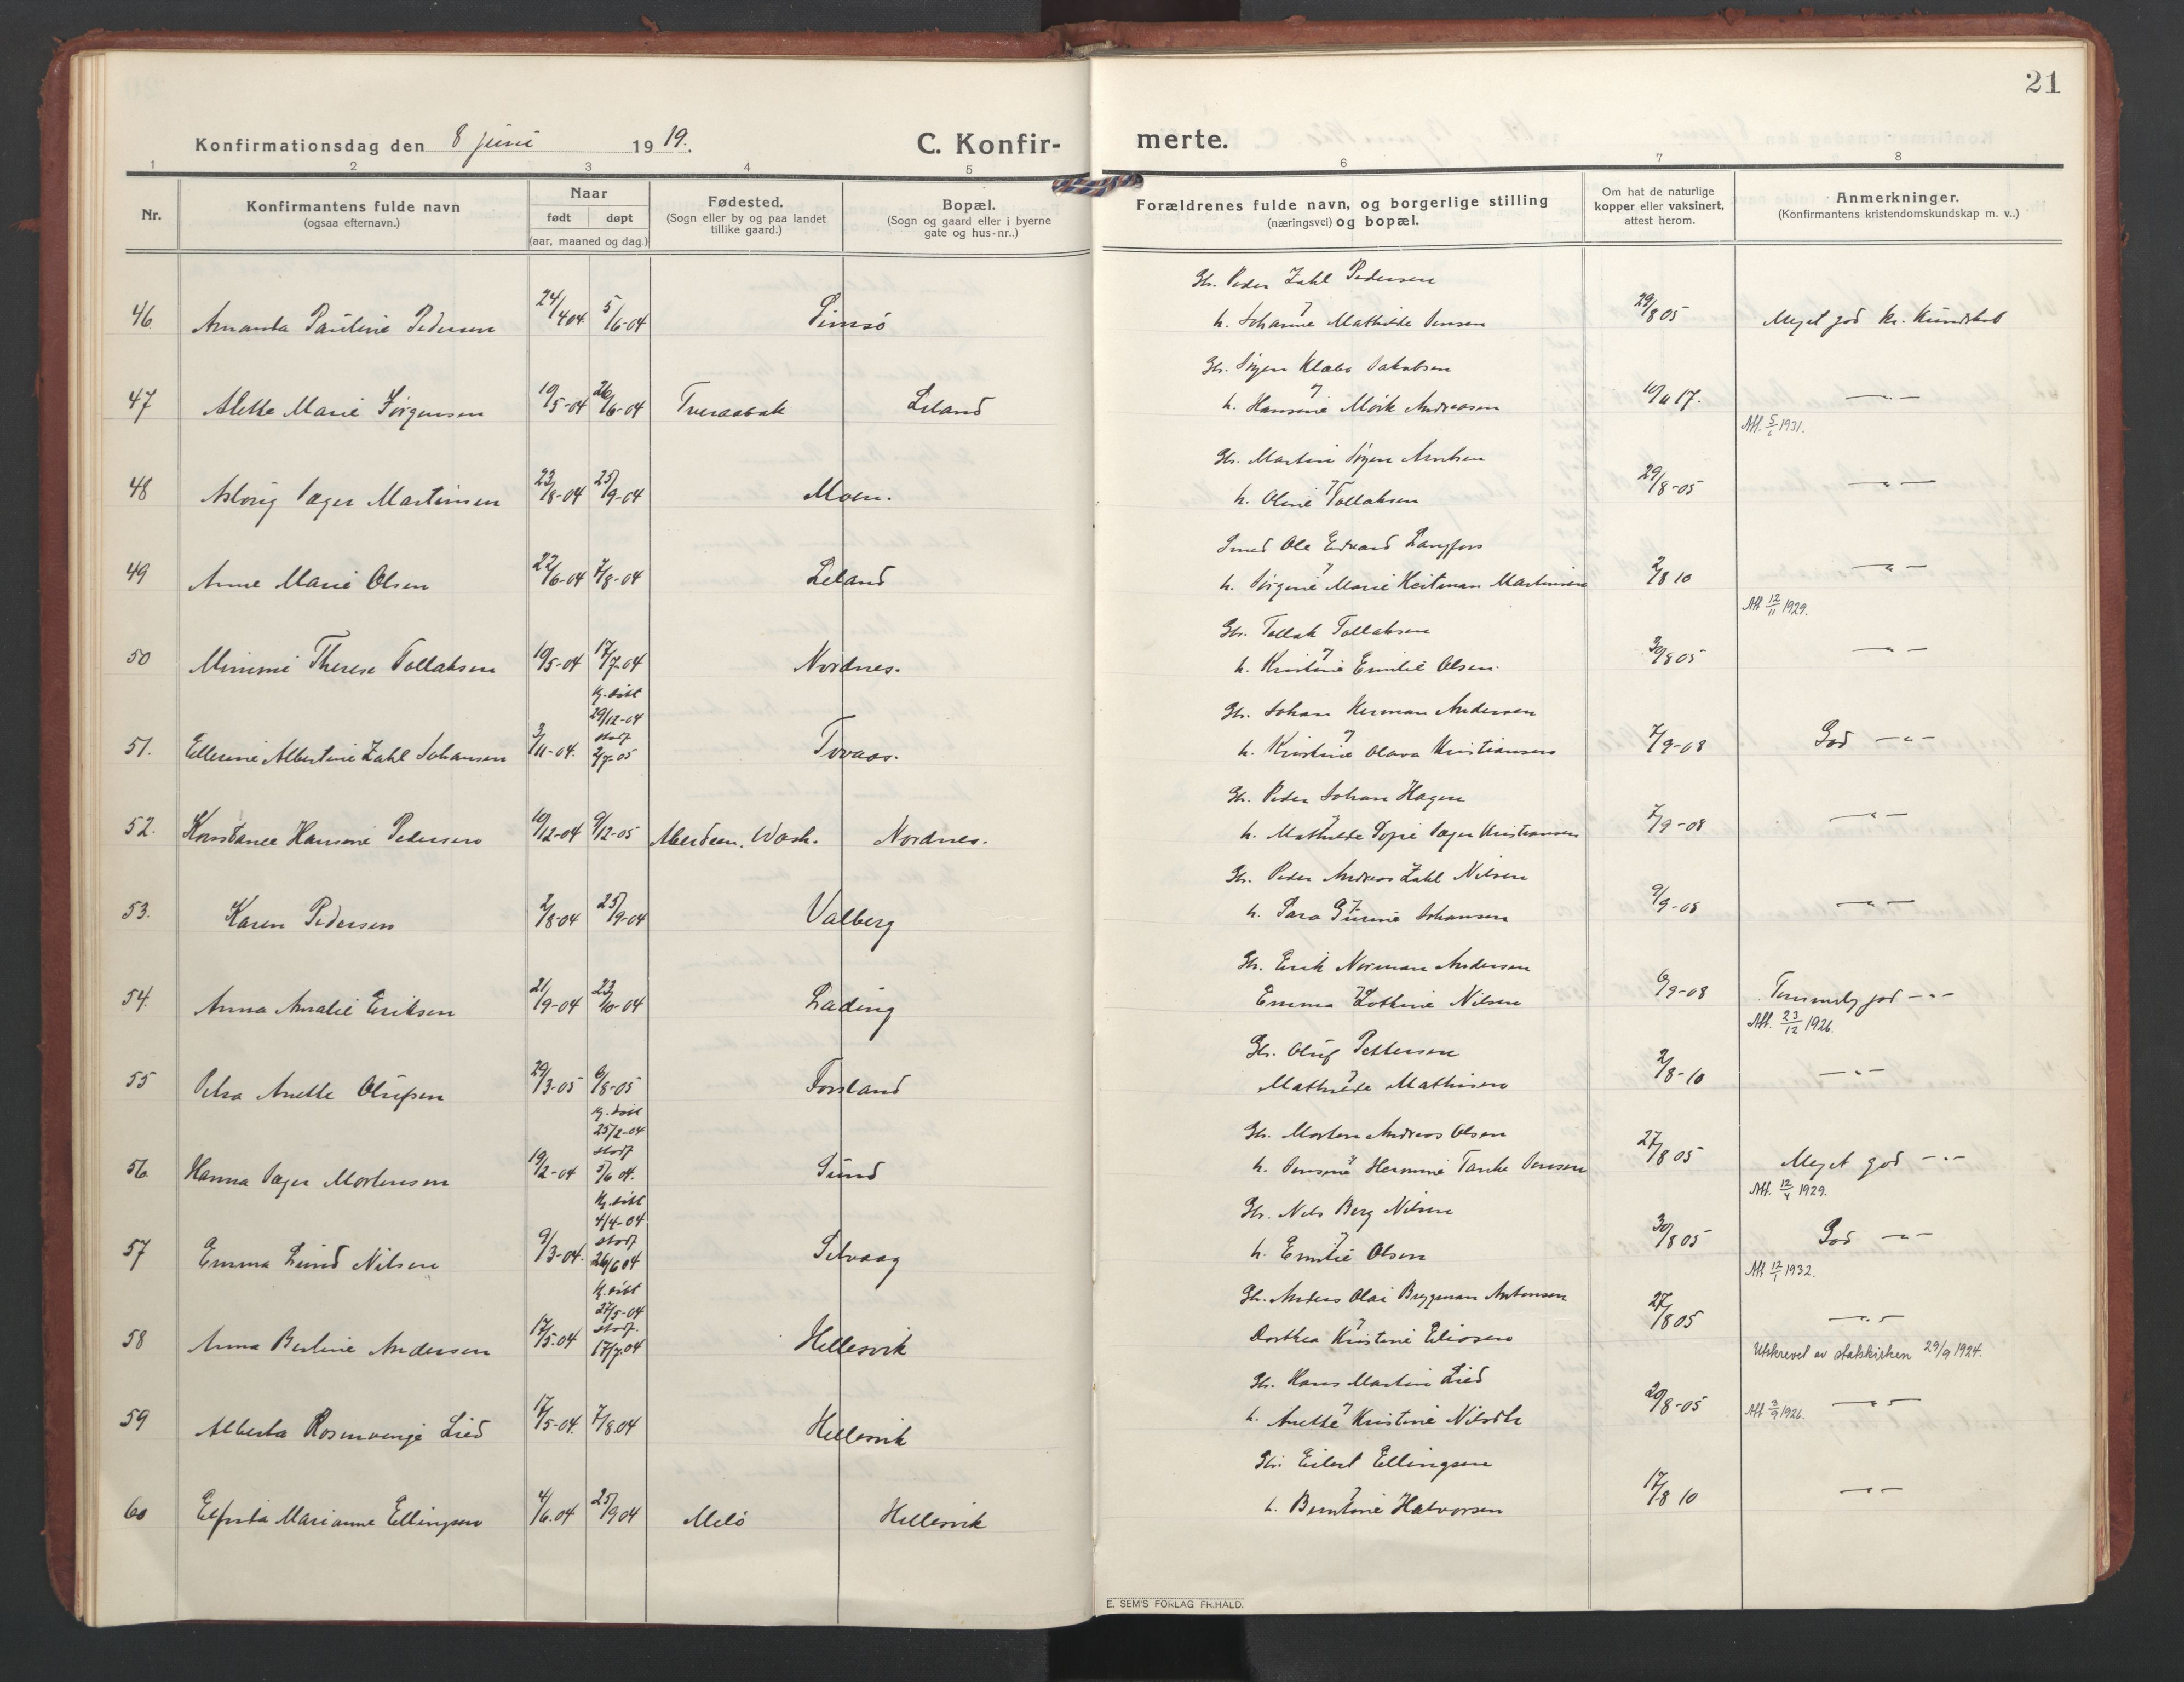 21
Konfirmationsdag den 8 juni 1919. C. Konfir- merte.
1 2 3 4 5 6 7 8
Nr.
Konfirmantens fulde navn
(ogsaa efternavn.)
Naar
født døpt
(aar, maaned og dag.)
Fødested.
(Sogn eller by og paa landet
tillike gaard.)
Bopæl.
(Sogn og gaard eller i byerne
gate og hus-nr..)
Forældrenes fulde navn, og borgerlige stilling
(næringsvei) og bopæl.
Om hat de naturlige
kopper eller vaksinert,
attest herom.
Anmerkninger.
(Konfirmantens kristendomskundskap m. v..)
Gbr. Peder Zahl Pedersen
46 Amanda Pauline Pedersen 24/4 04 5/6-04 Limsø h. Johanne Mathilde Jensen 29/8 05 Meget god kr. Kundskab
Gbr. Jørgen Klæbo Jakobsen
47 Alette Marie Jørgensen 10/5-04 26/6-04 Tveraabak Leland h. Hansine Mörk Andreasen 10/11 17. —"—
Att. 5/6 1931.
Gbr. Martin Jörgen Arntsen
48 Aslaug Jager Martinsen 23/8-04 25/9-04 Moen. h. Oline Tollaksen 29/8-05 —"—
Smed Ole Edvard Langfors
49 Anne Marie Olsen 22/6-04 7/8-04 Leland h. Jørgine Marie Heitman Martinsen 2/8 10 —"—
Att 12/11 1929.
Gbr. Tollak Tollaksen
50 Mimmi Therese Tollaksen 10/5-04 17/7-04 Nordnes. h. Kristine Emilie Olsen. 30/8 05 —"—
Hj. døbt
29/12-04
stadf.
Gbr. Johan Herman Andersen
51. Ellerine Albertine Zahl Johansen 3/11-04. 2/7-05 Tovaas. h. Kristine Olava Kristiansen 7/9-08 God —"—
Gbr. Peder Johan Hagen
52. Konstance Hansine Pedersen 10/12-04 9/12-05 Aberdeen, Wash. Nordnes. h. Mathilde Sofie Jager Kristiansen 7/9-08 —"—
Gbr. Peder Andreas Zahl Nilsen
53. Karen Pedersen 2/8 04 25/9-04 Valberg h. Sara Gurine Johansen 9/9-08 —"—
Gbr. Erik Norman Andersen
54. Anna Amalie Eriksen 21/9-04 23/10-04 Lading Emma Lothine Nilsen 6/9-08 Temmelig god —"—
Att. 23/12 1926.
Gbr. Oluf Pettersen
55 Petra Anette Olufsen 29/3-05 6/8-05 Forsland Mathilde Mathisen 2/8-10 —"—
Hj. døbt
25/2-04
stadf.
Gbr. Morten Andreas Olsen
56 Hanna Jager Mortensen 19/2-04 5/6 04. Sund h. Jensine Hermine Tanke Jensen 27/8 05 Meget god —"—
Att. 12/4 1929.
Hj. døbt
4/4-04
stadf.
Gbr. Nels Berg Nilsen
57 Emma Lund Nilsen 9/3-04. 26/6 04 Selvaag h. Emilie Olsen 30/8 05 God —"—
Att 12/1 1932.
Hj. døbt
27/5-04
stadf.
Gbr. Anders Olai Brygman Antonsen
58 Anna Berline Andersen 17/5-04 17/7-04 Hellesvik Dorthea Kristine Eliasen 27/8 05 —"—
Utskrevet av statskirken 29/9 1924.
Gbr. Hans Martin Lied
59 Alberta Rosenvenge Lied 17/5-04. 7/8 04 Hellesvik h. Anette Kristine Nilsdtr 29/8-05 Att 3/9 1926. —"—
Gbr. Eilert Ellingsen
60 Elfrida Marianne Ellingsen 4/6.04 25/9 04 Melö Hellesvik h. Berntine Halvorsen 17/8 10 —"—
E. SEM'S FORLAG FR.HALD.